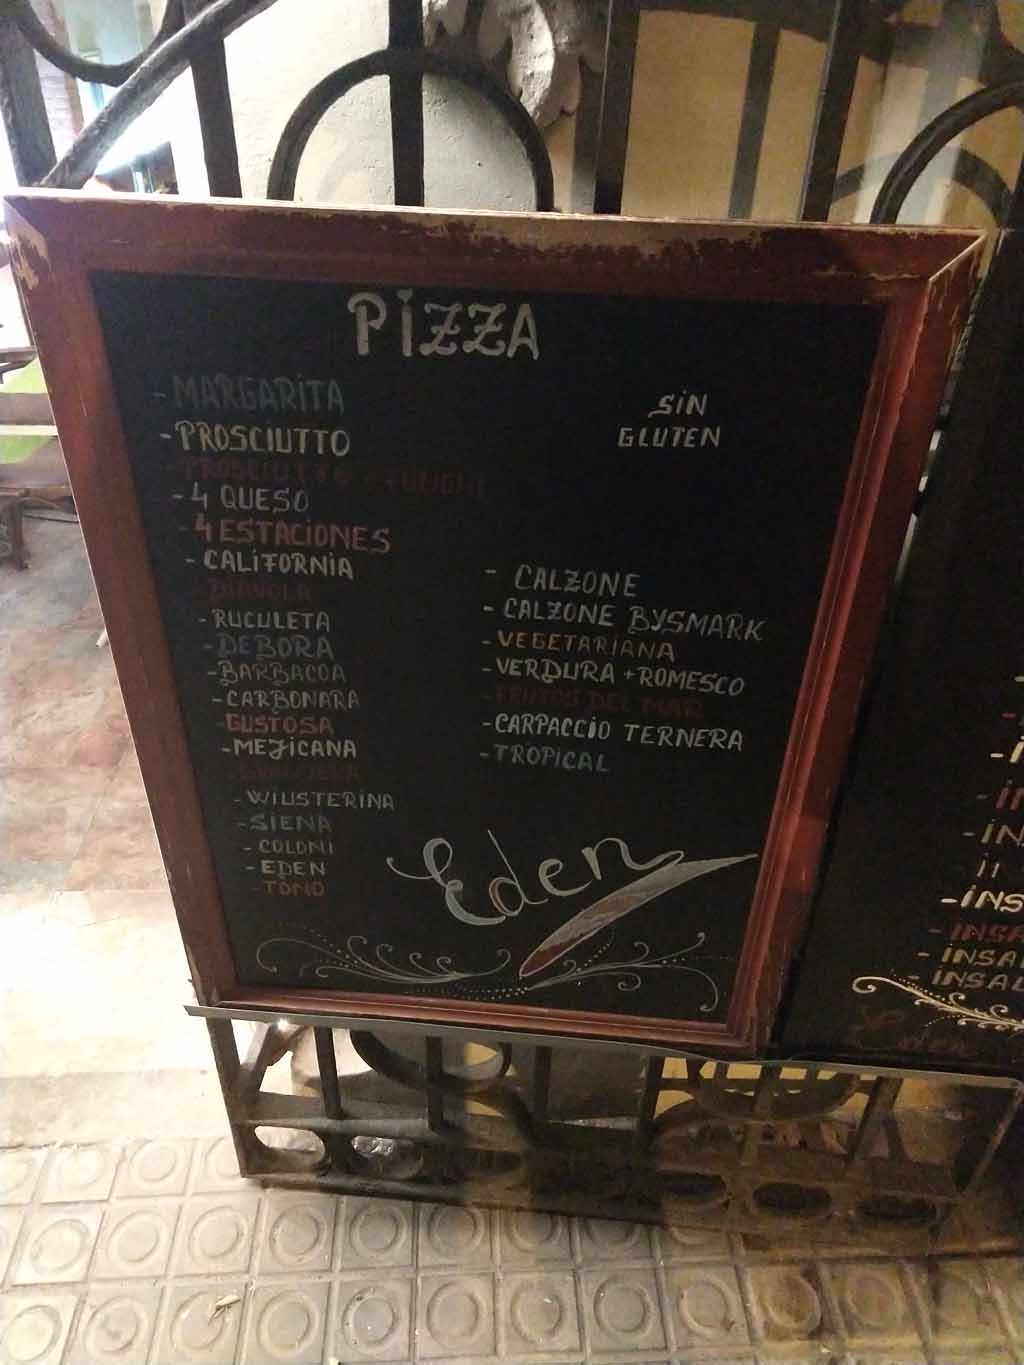 PiZZA
- MARGARiTA
- PROSCIUTTO
- PROSCIUTTO + FUNGHI
- 4 QUESO
- 4 ESTACiONES
- CALiFORNiA
- DIAVOLA
- RUCULETA
- DEBORA
- BARBACOA
- CARBONARA
- GUSTOSA
- MEJICANA
- WIUSTERINA
- SIENA
- COLONI
- EDEN
- TONO
SiN
GLUTEN
- CALZONE
- CALZONE BYSMARK
- VEGETARIANA
- VERDURA + ROMESCO
- FRUTOS DEL MAR
- CARPACCiO TERNERA
- TROPiCAL
Eden